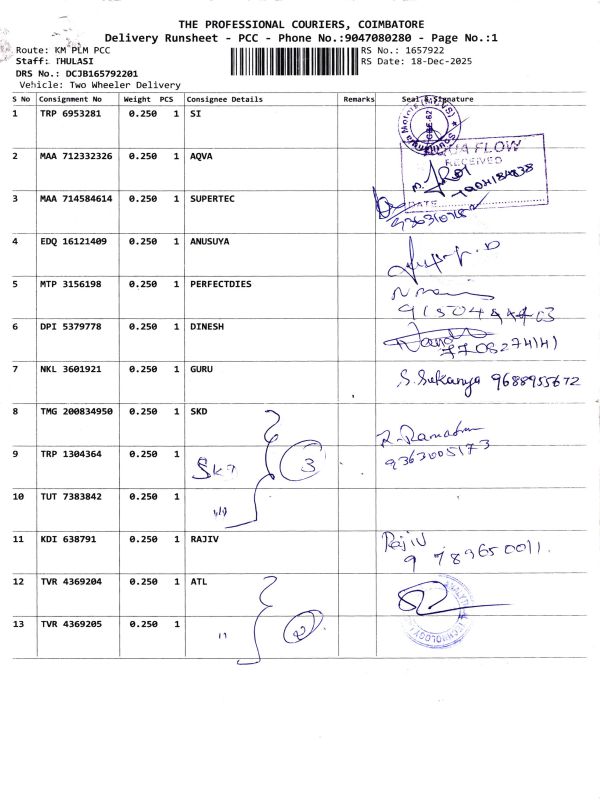 THE PROFESSIONAL COURIERS, COIMBATORE
Delivery Runsheet - PCC - Phone No.:9047080280 - Page No.:1
Route: KM PLM PCC
RS No.: 1657922
Staff: THULASI
RS Date: 18-Dec-2025
DRS No.: DCJB165792201
Vehicle: Two Wheeler Delivery
S No Consignment No Weight PCS Consignee Details Remarks Seal & Signature
1 TRP 6953281 0.250 1 SI
2 MAA 712332326 0.250 1 AQVA
AQUA FLOW
RECEIVED
DATE
3 MAA 714584614 0.250 1 SUPERTEC
4 EDQ 16121409 0.250 1 ANUSUYA
5 MTP 3156198 0.250 1 PERFECTDIES
6 DPI 5379778 0.250 1 DINESH
7 NKL 3601921 0.250 1 GURU S. Sukanya 9688955672
8 TMG 200834950 0.250 1 SKD
9 TRP 1304364 0.250 1 3 9363005173
10 TUT 7383842 0.250 1 "
11 KDI 638791 0.250 1 RAJIV Rajiv
9789650011.
12 TVR 4369204 0.250 1 ATL
13 TVR 4369205 0.250 1 " 2